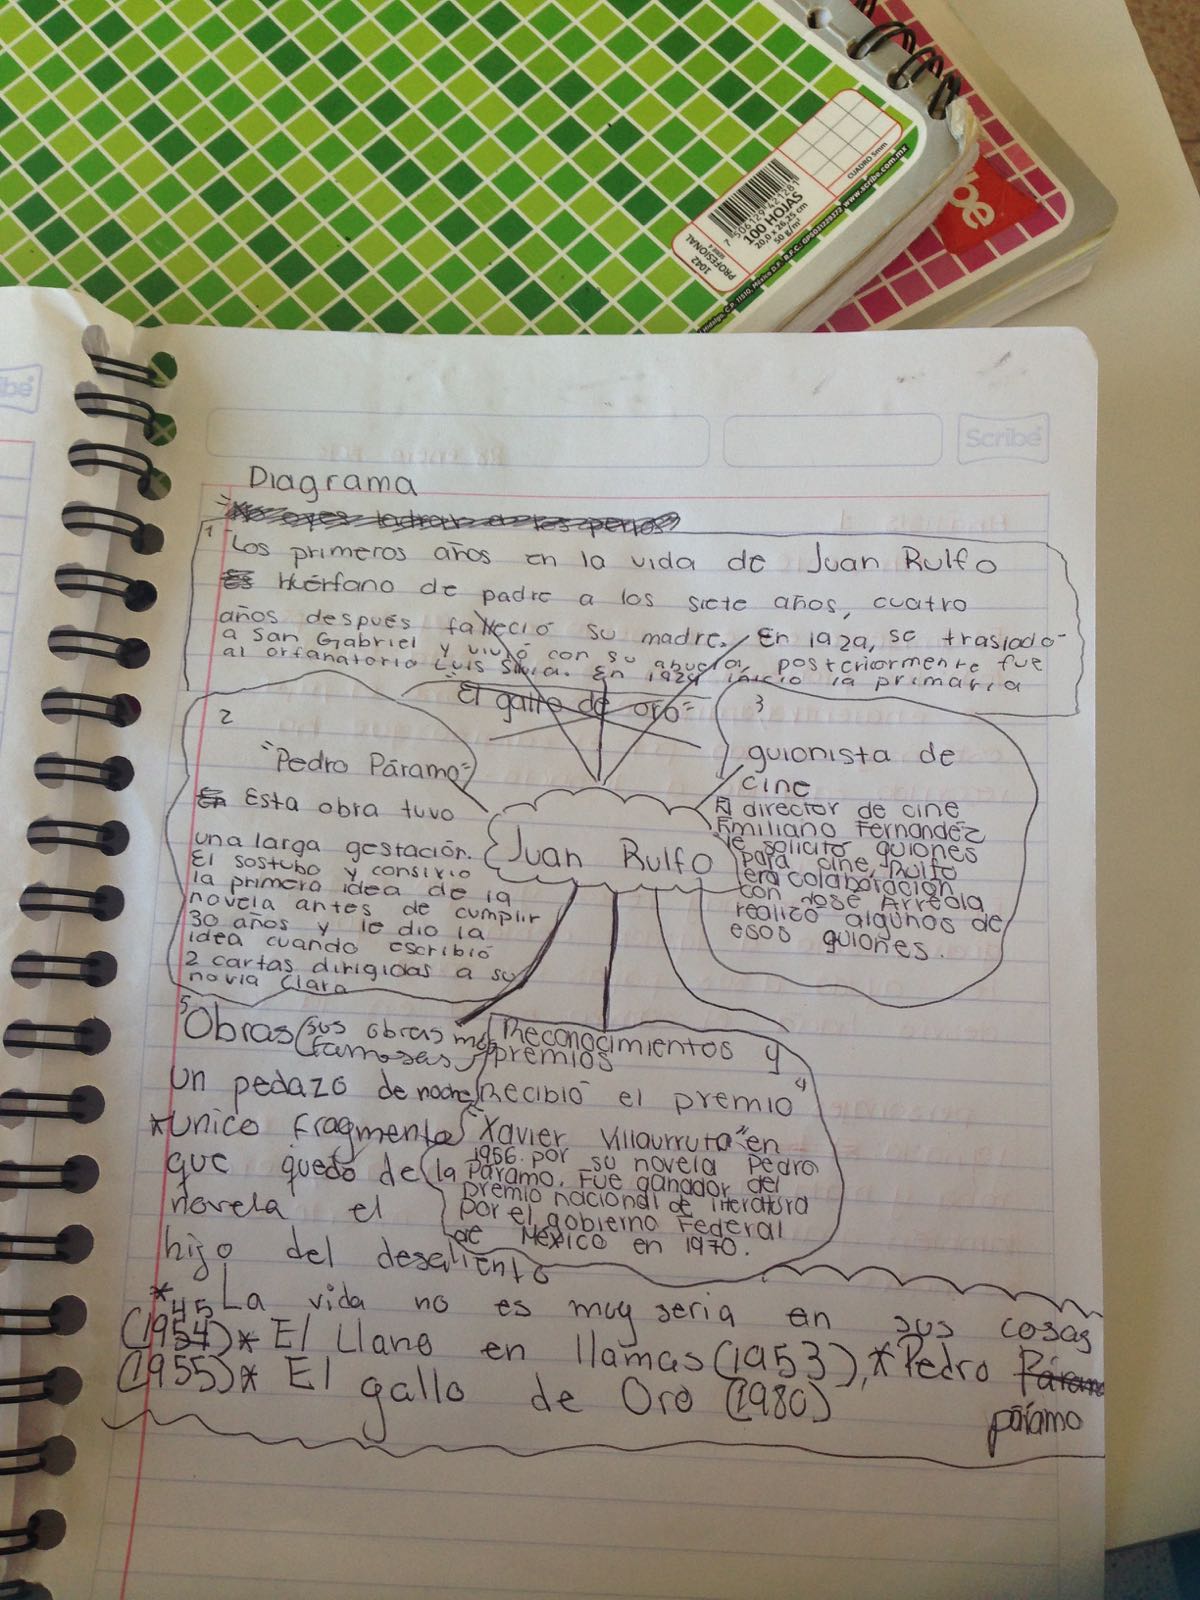 CUADRO 5mm
7 506129 421281
100 HOJAS
20,0 x 26,25 cm
50 g/m²
1042 SERIE 4
PROFESIONAL
Hidalgo, C.P. 11510, México D.F. R.F.C. GPS031228372 www.scribe.com.mx
ibe
Scribe
Diagrama
1
Los primeros años en la vida de Juan Rulfo
Huérfano de padre a los siete años, cuatro
años después falleció su madre. En 192a, se traslado
a San Gabriel y vivió con su abuela, posteriormente fue
al orfanatorio Luis Silvia. En 1924 inicio la primaria
"El gallo de oro"
2
"Pedro Páramo"
Esta obra tuvo
una larga gestación.
El sostubo y consivio
la primera idea de la
novela antes de cumplir
30 años y le dio la
idea cuando escribió
2 cartas dirigidas a su
novia Clara
3
guionista de
cine
El director de cine
Emiliano Fernandez
le solicito guiones
para cine, Rulfo
en colaboración
con Jose Arreola
realizo algunos de
esos guiones.
Juan Rulfo
5
Obras (sus obras mas
famosas)
Un pedazo de noche
*unico fragmento
que quedo de la
novela el
hijo del desaliento
Reconocimientos y
premios
4
Recibió el premio
"Xavier Villaurruta" en
1956 por su novela Pedro
Páramo. Fue ganador del
premio nacional de literatura
por el gobierno Federal
de México en 1970.
* La vida no es muy seria en sus cosas
(1945)* El Llano en llamas (1953), *Pedro páramo
(1955)* El gallo de Oro (1980)